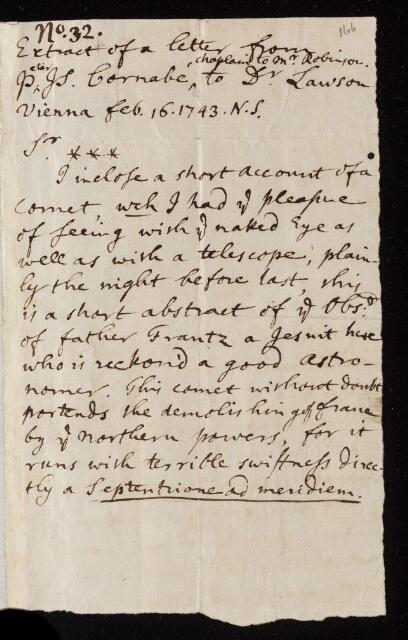 No. 32.
166
Extract of a letter from
chaplain to Mr Robinson.
Peter Js. Cornabe, to Dr Lawson
Vienna feb. 16. 1743. N.S.
Sr ***
I inclose a short account of a
comet wch I had ye pleasure
of seeing with ye naked Eye as
well as with a telescope, plain-
ly the night before last, this
is a short abstract of ye Obs.
of father Frantz a Jesuit here
who is reckon'd a good astro-
nomer. This comet without doubt
portends the demolishing of france
by ye northern powers, for it
runs with terrible swiftness direc-
tly a Septentrione ad meridiem.